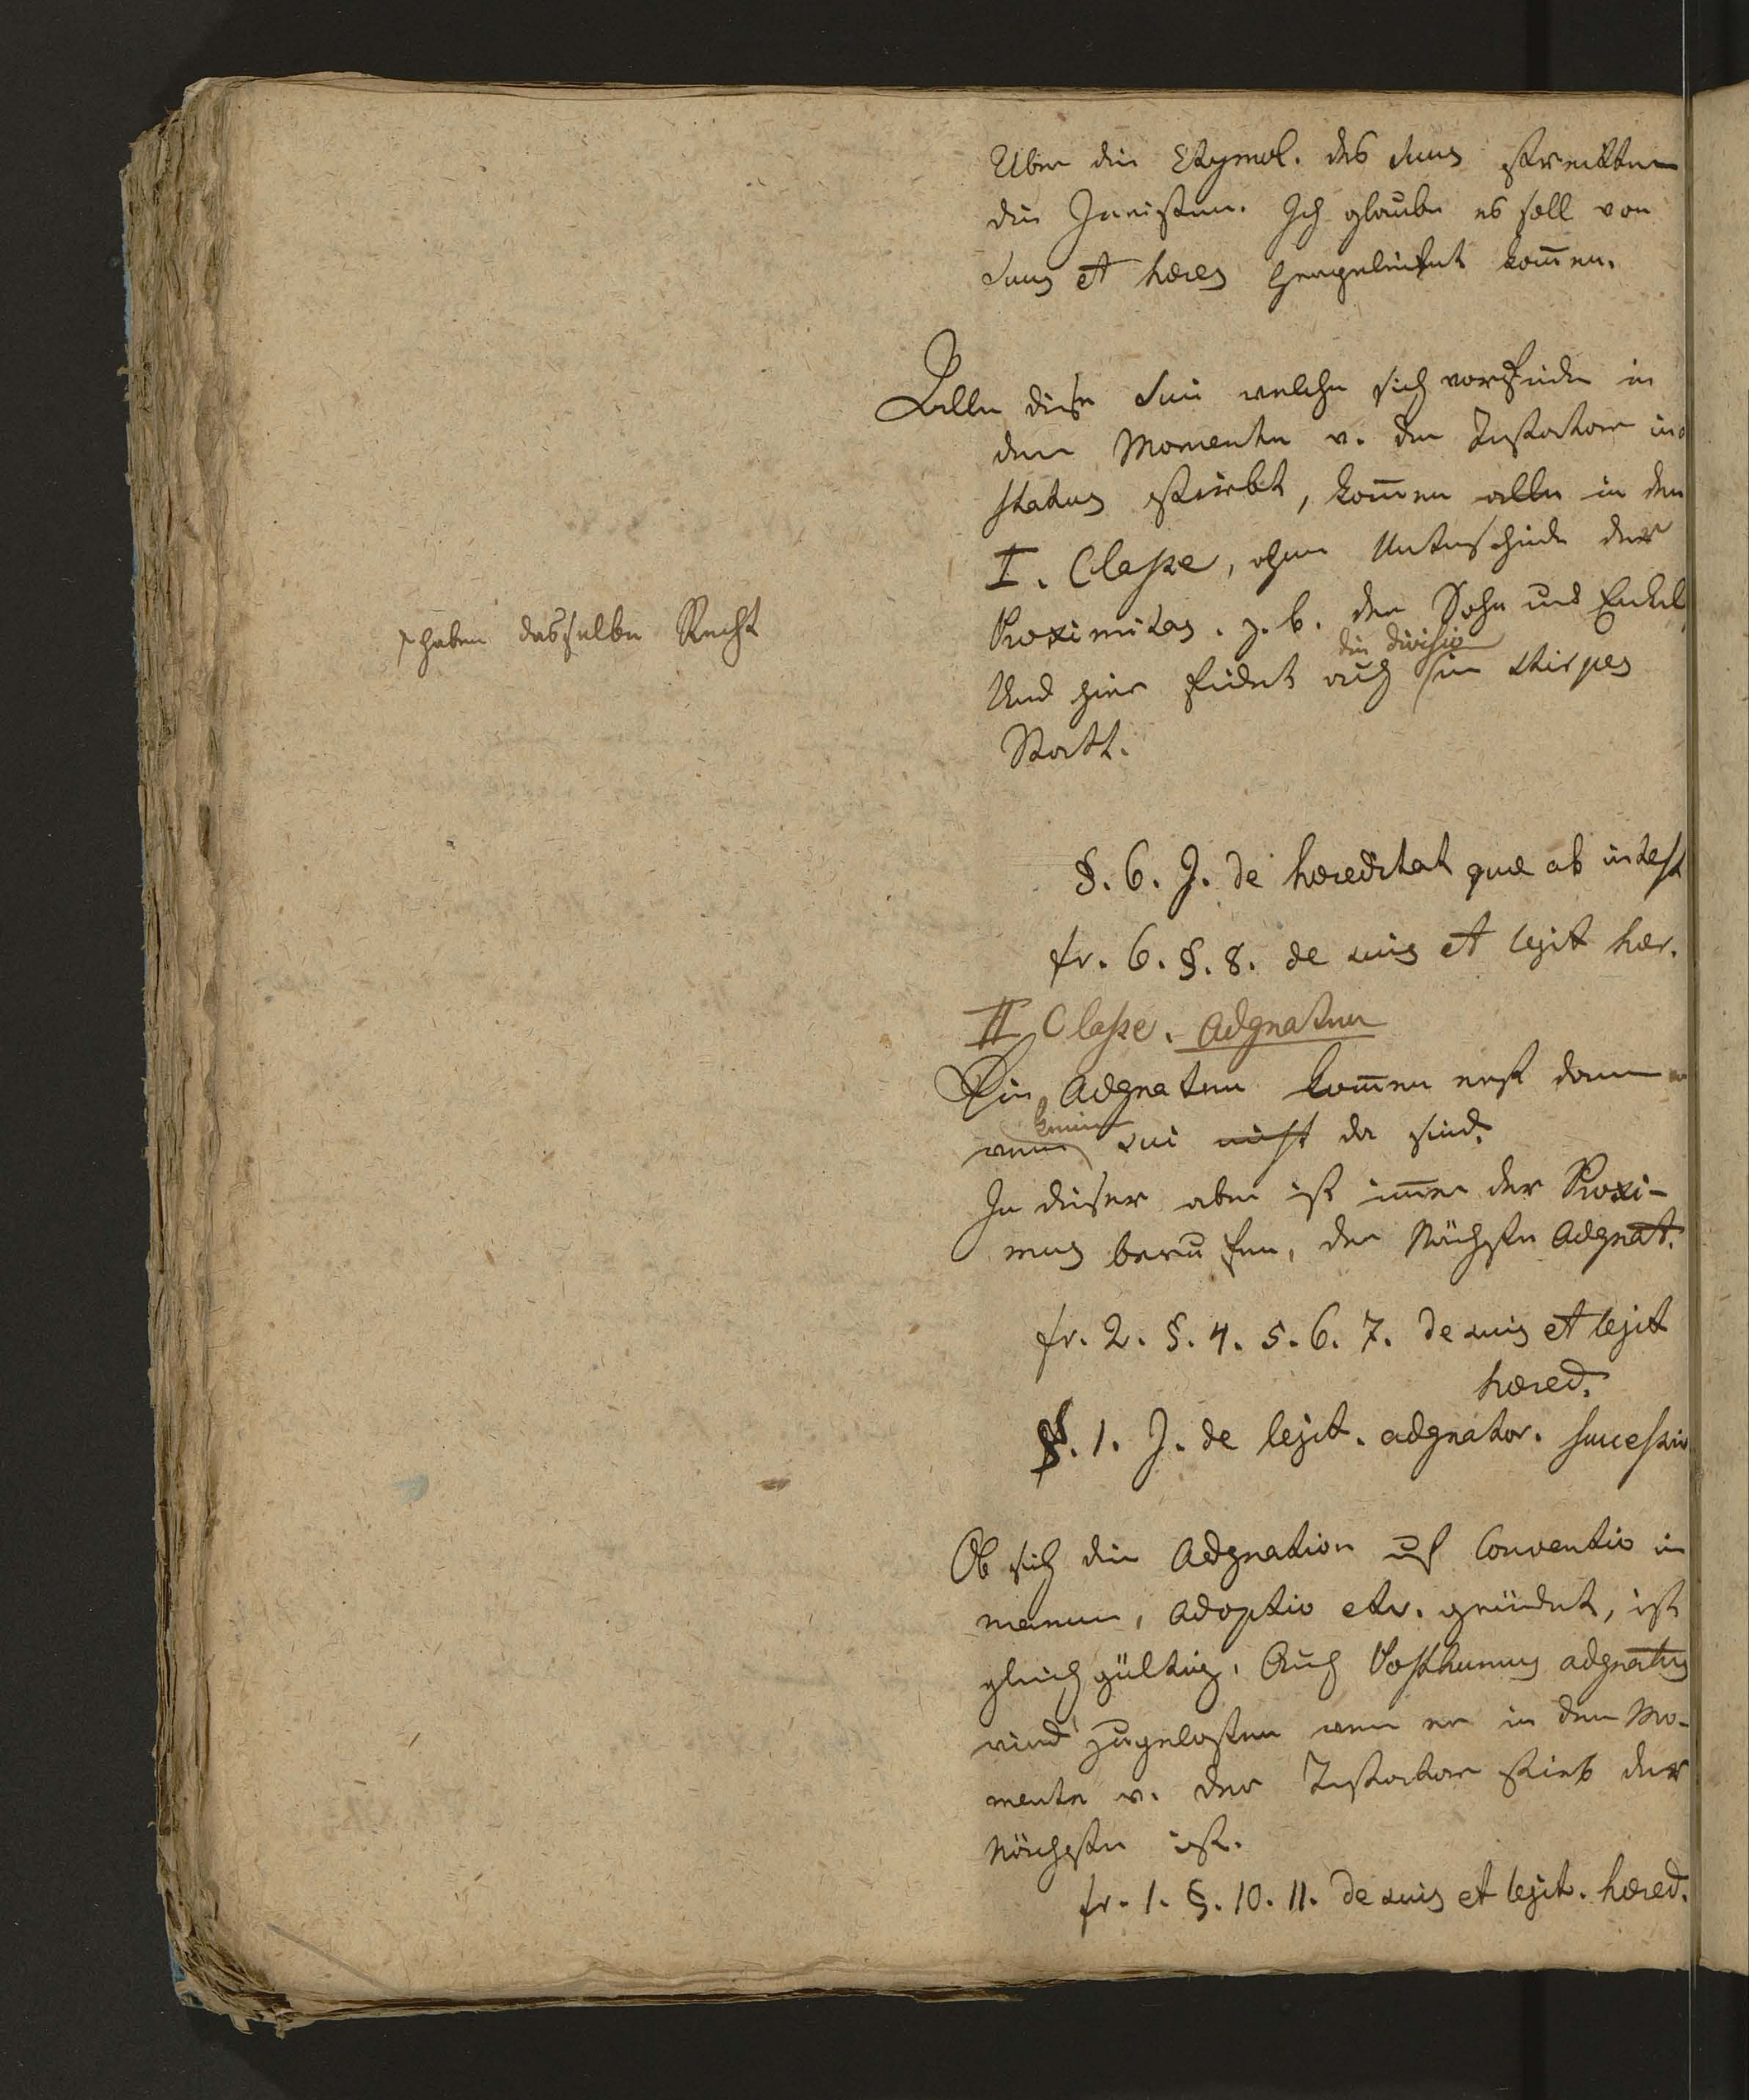 Uber die Etymol. des suus streitten
die Juristen. Ich glaube es soll von
suus et heres hergeleitet kom̄en.
Alle diese Sui welche sich vorfinden in
dem Momente v. der Testator in
status stirbt, kom̄en alle in den
I. Classe, ohne Unterschiede der
Proximitas. z. b. der Sohn und Enkel
haben dasselbe Recht
die divisio
Und hier findet auch in stirpes
Statt.
§. 6. J. de haereditat quae ab intest
fr. 6. §. 8. de suis et legit her.
II Classe. Adgnaten
Die Adgnaten kom̄en erst dann
keine
wenn sui nicht da sind.
In dieser aber ist im̄er der Proxi-
mus berufen, der Nächste Adgnat.
fr. 2. §. 4. 5. 6. 7. de suis et legit
haered.
§. 1. J. de legit. adgnator. successio
Ob sich die Adgnation auf Conventio in
manum, Adoptio etc. gründet, ist
gleichgültig. Auch Posthumus adgnatus
wird zugelassen wenn er in dem Mo-
mente v. der Testator stirb der
Nächste ist.
fr. 1. §. 10. 11. de suis et legit. haered.